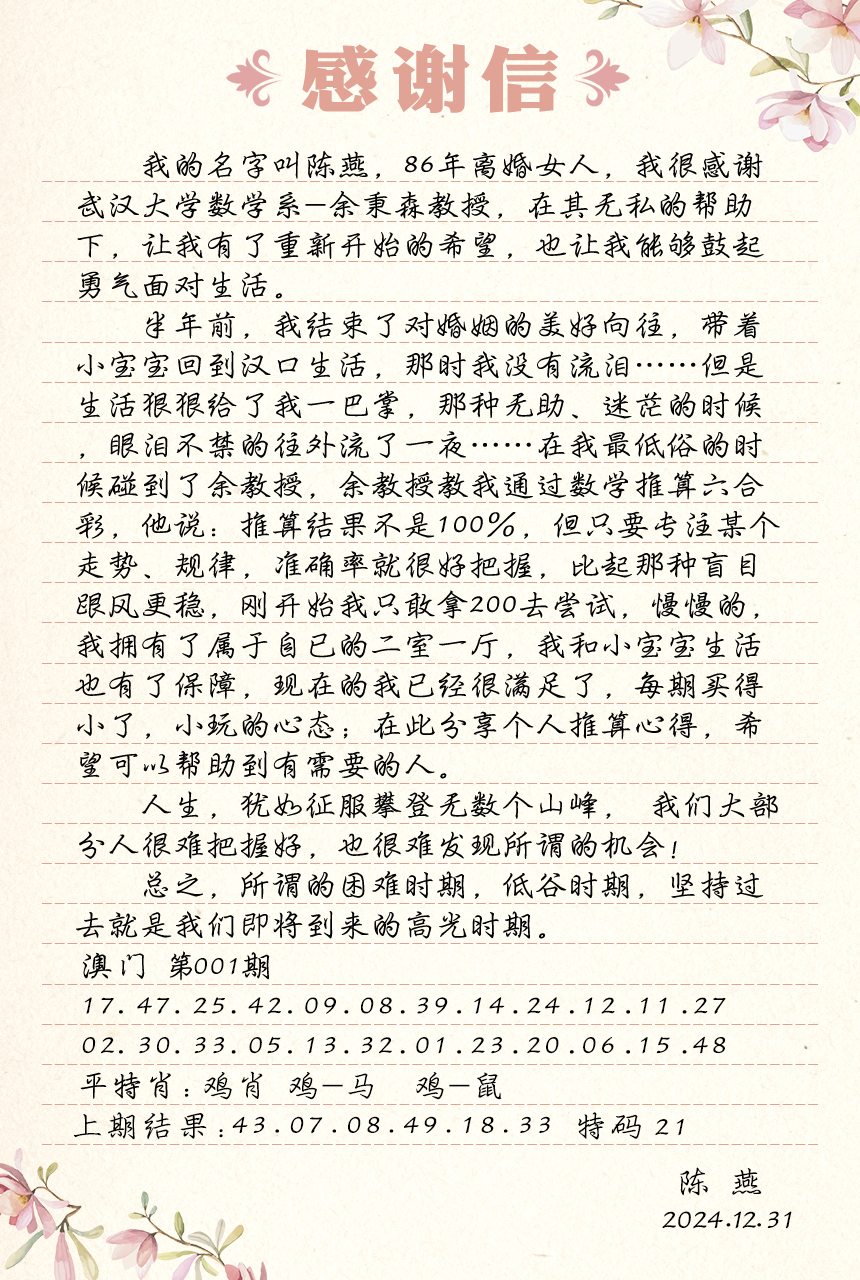 感谢信
我的名字叫陈燕，86年离婚女人，我很感谢
武汉大学数学系—余秉森教授，在其无私的帮助
下，让我有了重新开始的希望，也让我能够鼓起
勇气面对生活。
半年前，我结束了对婚姻的美好向往，带着
小宝宝回到汉口生活，那时我没有流泪……但是
生活狠狠给了我一巴掌，那种无助、迷茫的时候
，眼泪不禁的往外流了一夜……在我最低俗的时
候碰到了余教授，余教授教我通过数学推算六合
彩，他说：推算结果不是100%，但只要专注某个
走势、规律，准确率就很好把握，比起那种盲目
跟风更稳，刚开始我只敢拿200去尝试，慢慢的，
我拥有了属于自已的二室一厅，我和小宝宝生活
也有了保障，现在的我已经很满足了，每期买得
小了，小玩的心态；在此分享个人推算心得，希
望可以帮助到有需要的人。
人生，犹如征服攀登无数个山峰， 我们大部
分人很难把握好，也很难发现所谓的机会！
总之，所谓的困难时期，低谷时期，坚持过
去就是我们即将到来的高光时期。
澳门 第001期
17.47.25.42.09.08.39.14.24.12.11.27
02.30.33.05.13.32.01.23.20.06.15.48
平特肖：鸡肖 鸡—马 鸡—鼠
上期结果：43.07.08.49.18.33 特码 21
陈 燕
2024.12.31